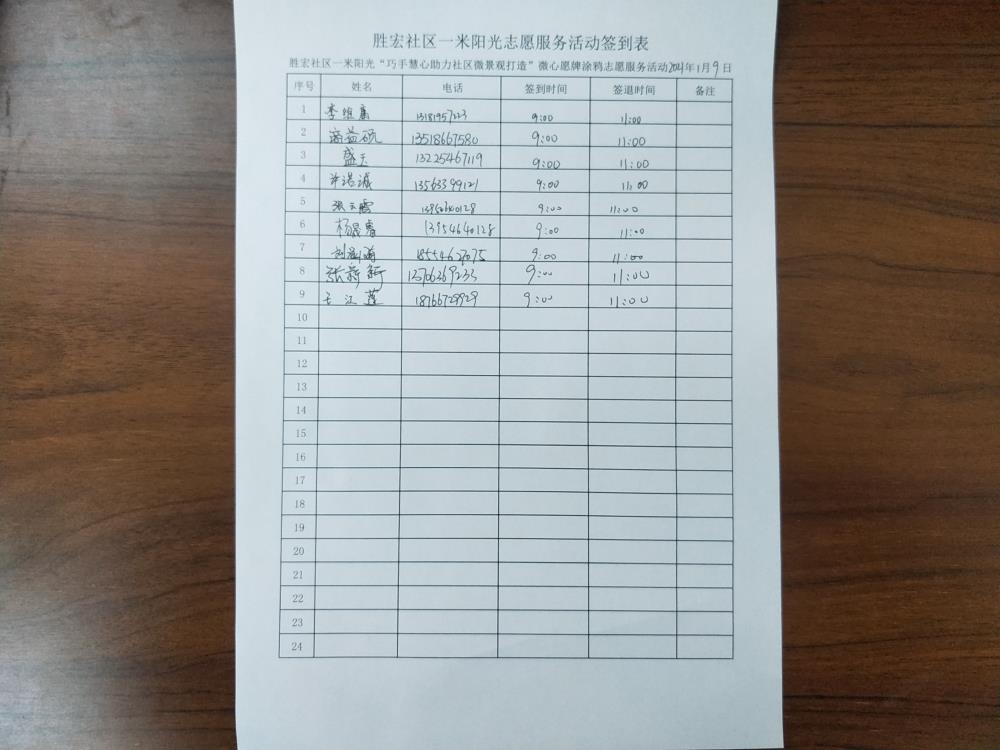 胜宏社区一米阳光志愿服务活动签到表
胜宏社区一米阳光“巧手慧心助力社区微景观打造”微心愿牌涂鸦志愿服务活动2024年1月9日
序号 姓名 电话 签到时间 签退时间 备注
1 13181957223 9:00 11:00
2 13518667580 9:00 11:00
3 盛天 13225467119 9:00 11:00
4 许浩诚 13563399121 9:00 11:00
5 13950640128 9:00 11:00
6 杨晟睿 13954640128 9:00 11:00
7 18554627075 9:00 11:00
8 13706369233 9:00 11:00
9 王江莲 18766729929 9:00 11:00
10
11
12
13
14
15
16
17
18
19
20
21
22
23
24